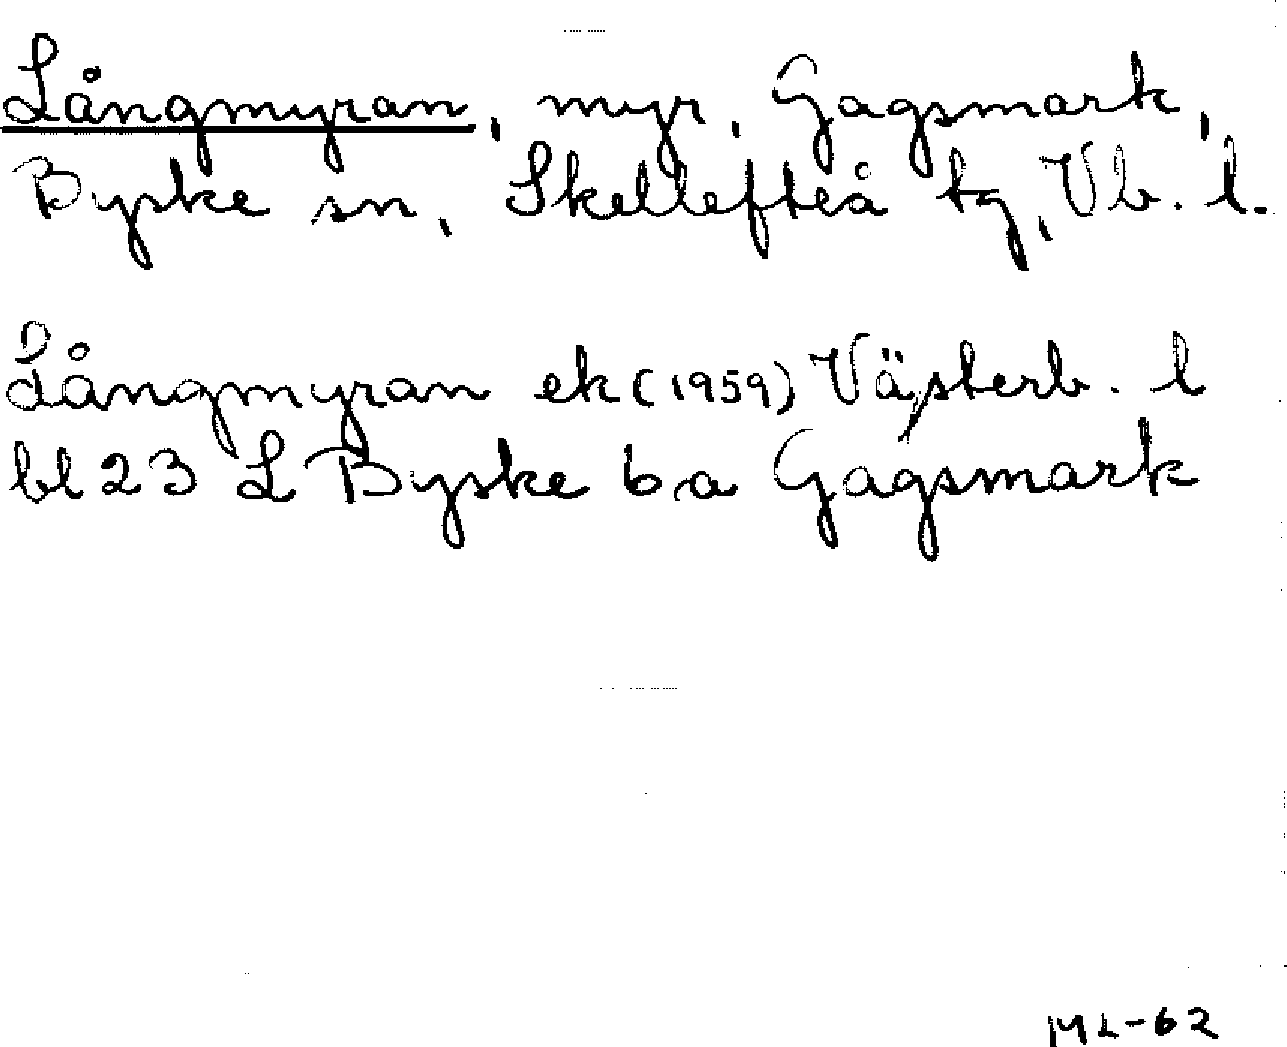 Långmyran, myr, Gagsmark,
Byske sn, Skellefteå tg, Vb. l.
Långmyran ek (1959) Västerb. l
bl 23 L Byske b,a Gagsmark
ML-62